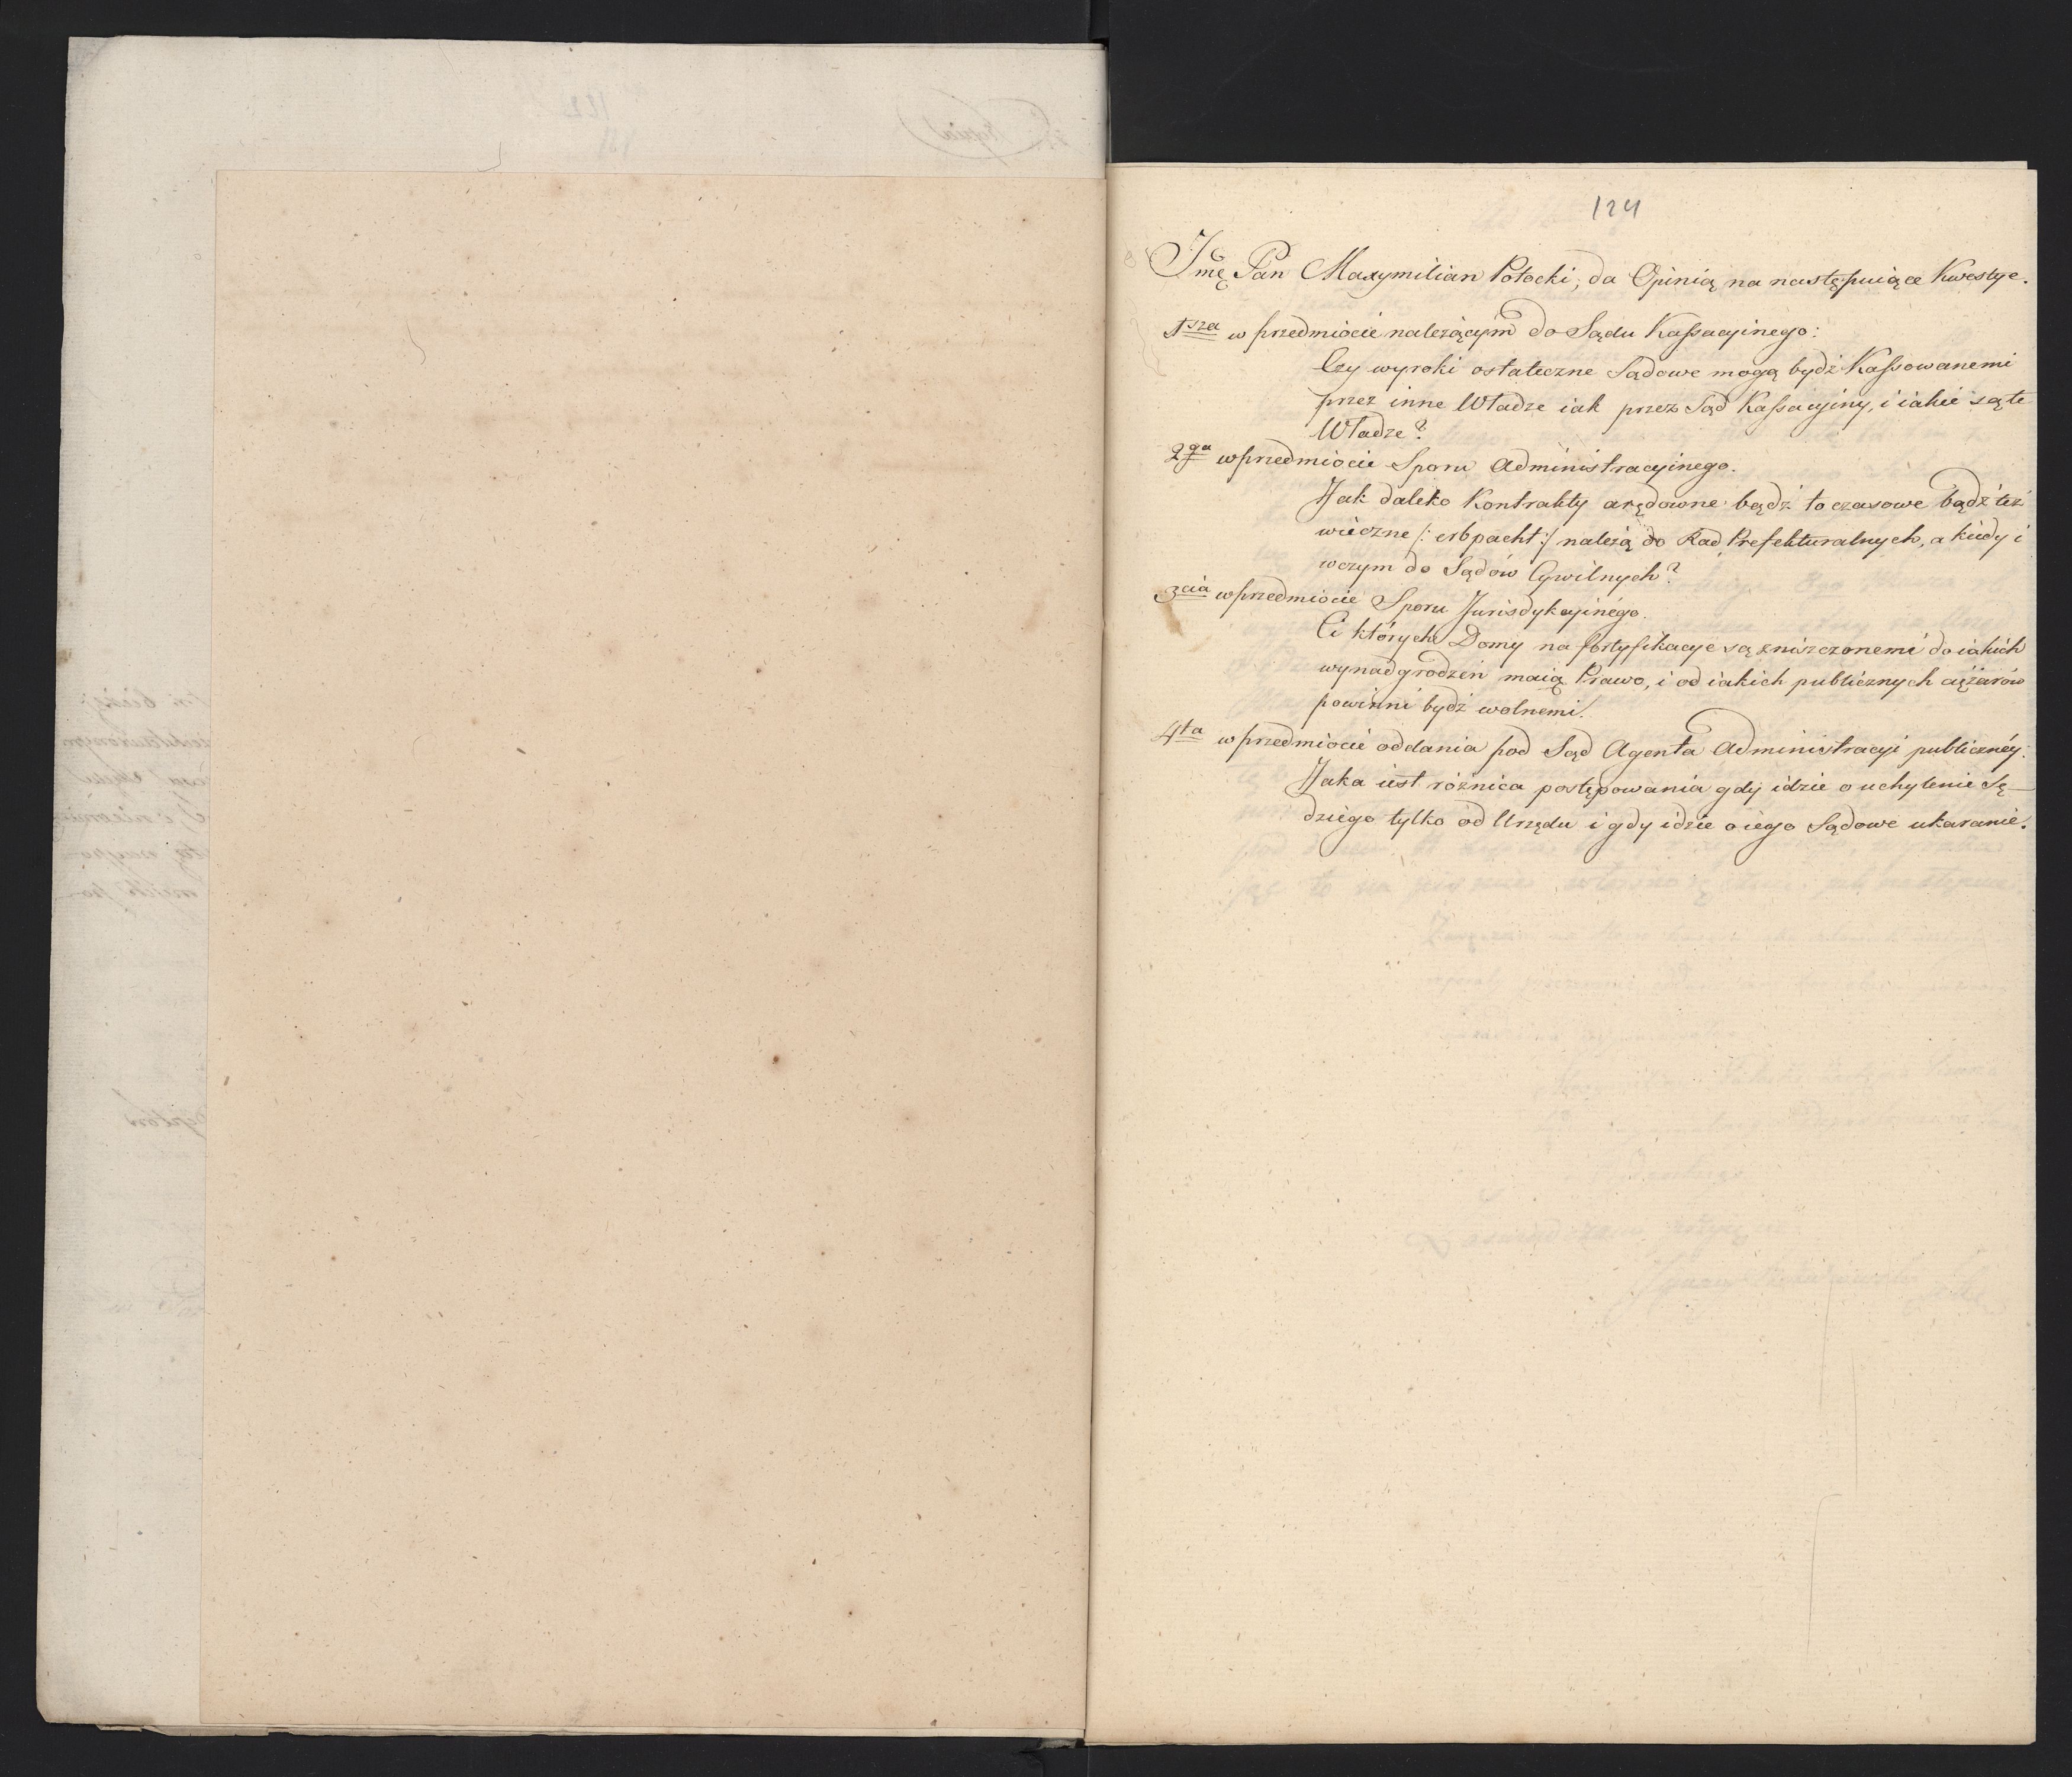 124
Jmć Pan Maxymilian Potocki, da Opinią na następuiące Kwestye.
1sza w przedmiocie należącym do Sądu Kassacyinego:
Czy wyroki ostateczne Sądowe mogą bydź Kassowanemi
przez inne Władze iak przez Sąd Kassacyiny, i iakie są te
Władze?
2ga w przedmiocie Sporu Administracyinego.
Jak daleko Kontrakty arędowne bądź to czasowe bądź też
wieczne /: erbpacht :/ należą do Rad Prefekturalnych, a kiedy i
w czym do Sądów Cywilnych?
3cia w przedmiocie Sporu Jurisdykcyinego.
Ci których Domy na fortyfikacye są zniszczonemi do iakich
wynadgrodzeń maią Prawo, i od iakich publicznych ciężarów
powinni bydź wolnemi.
4ta w przedmiocie oddania pod Sąd Agenta Administracyi publiczney.
Jaka iest różnica postępowania gdy idzie o uchylenie Sę–
dziego tylko od Urzędu i gdy idzie o iego Sądowe ukaranie.